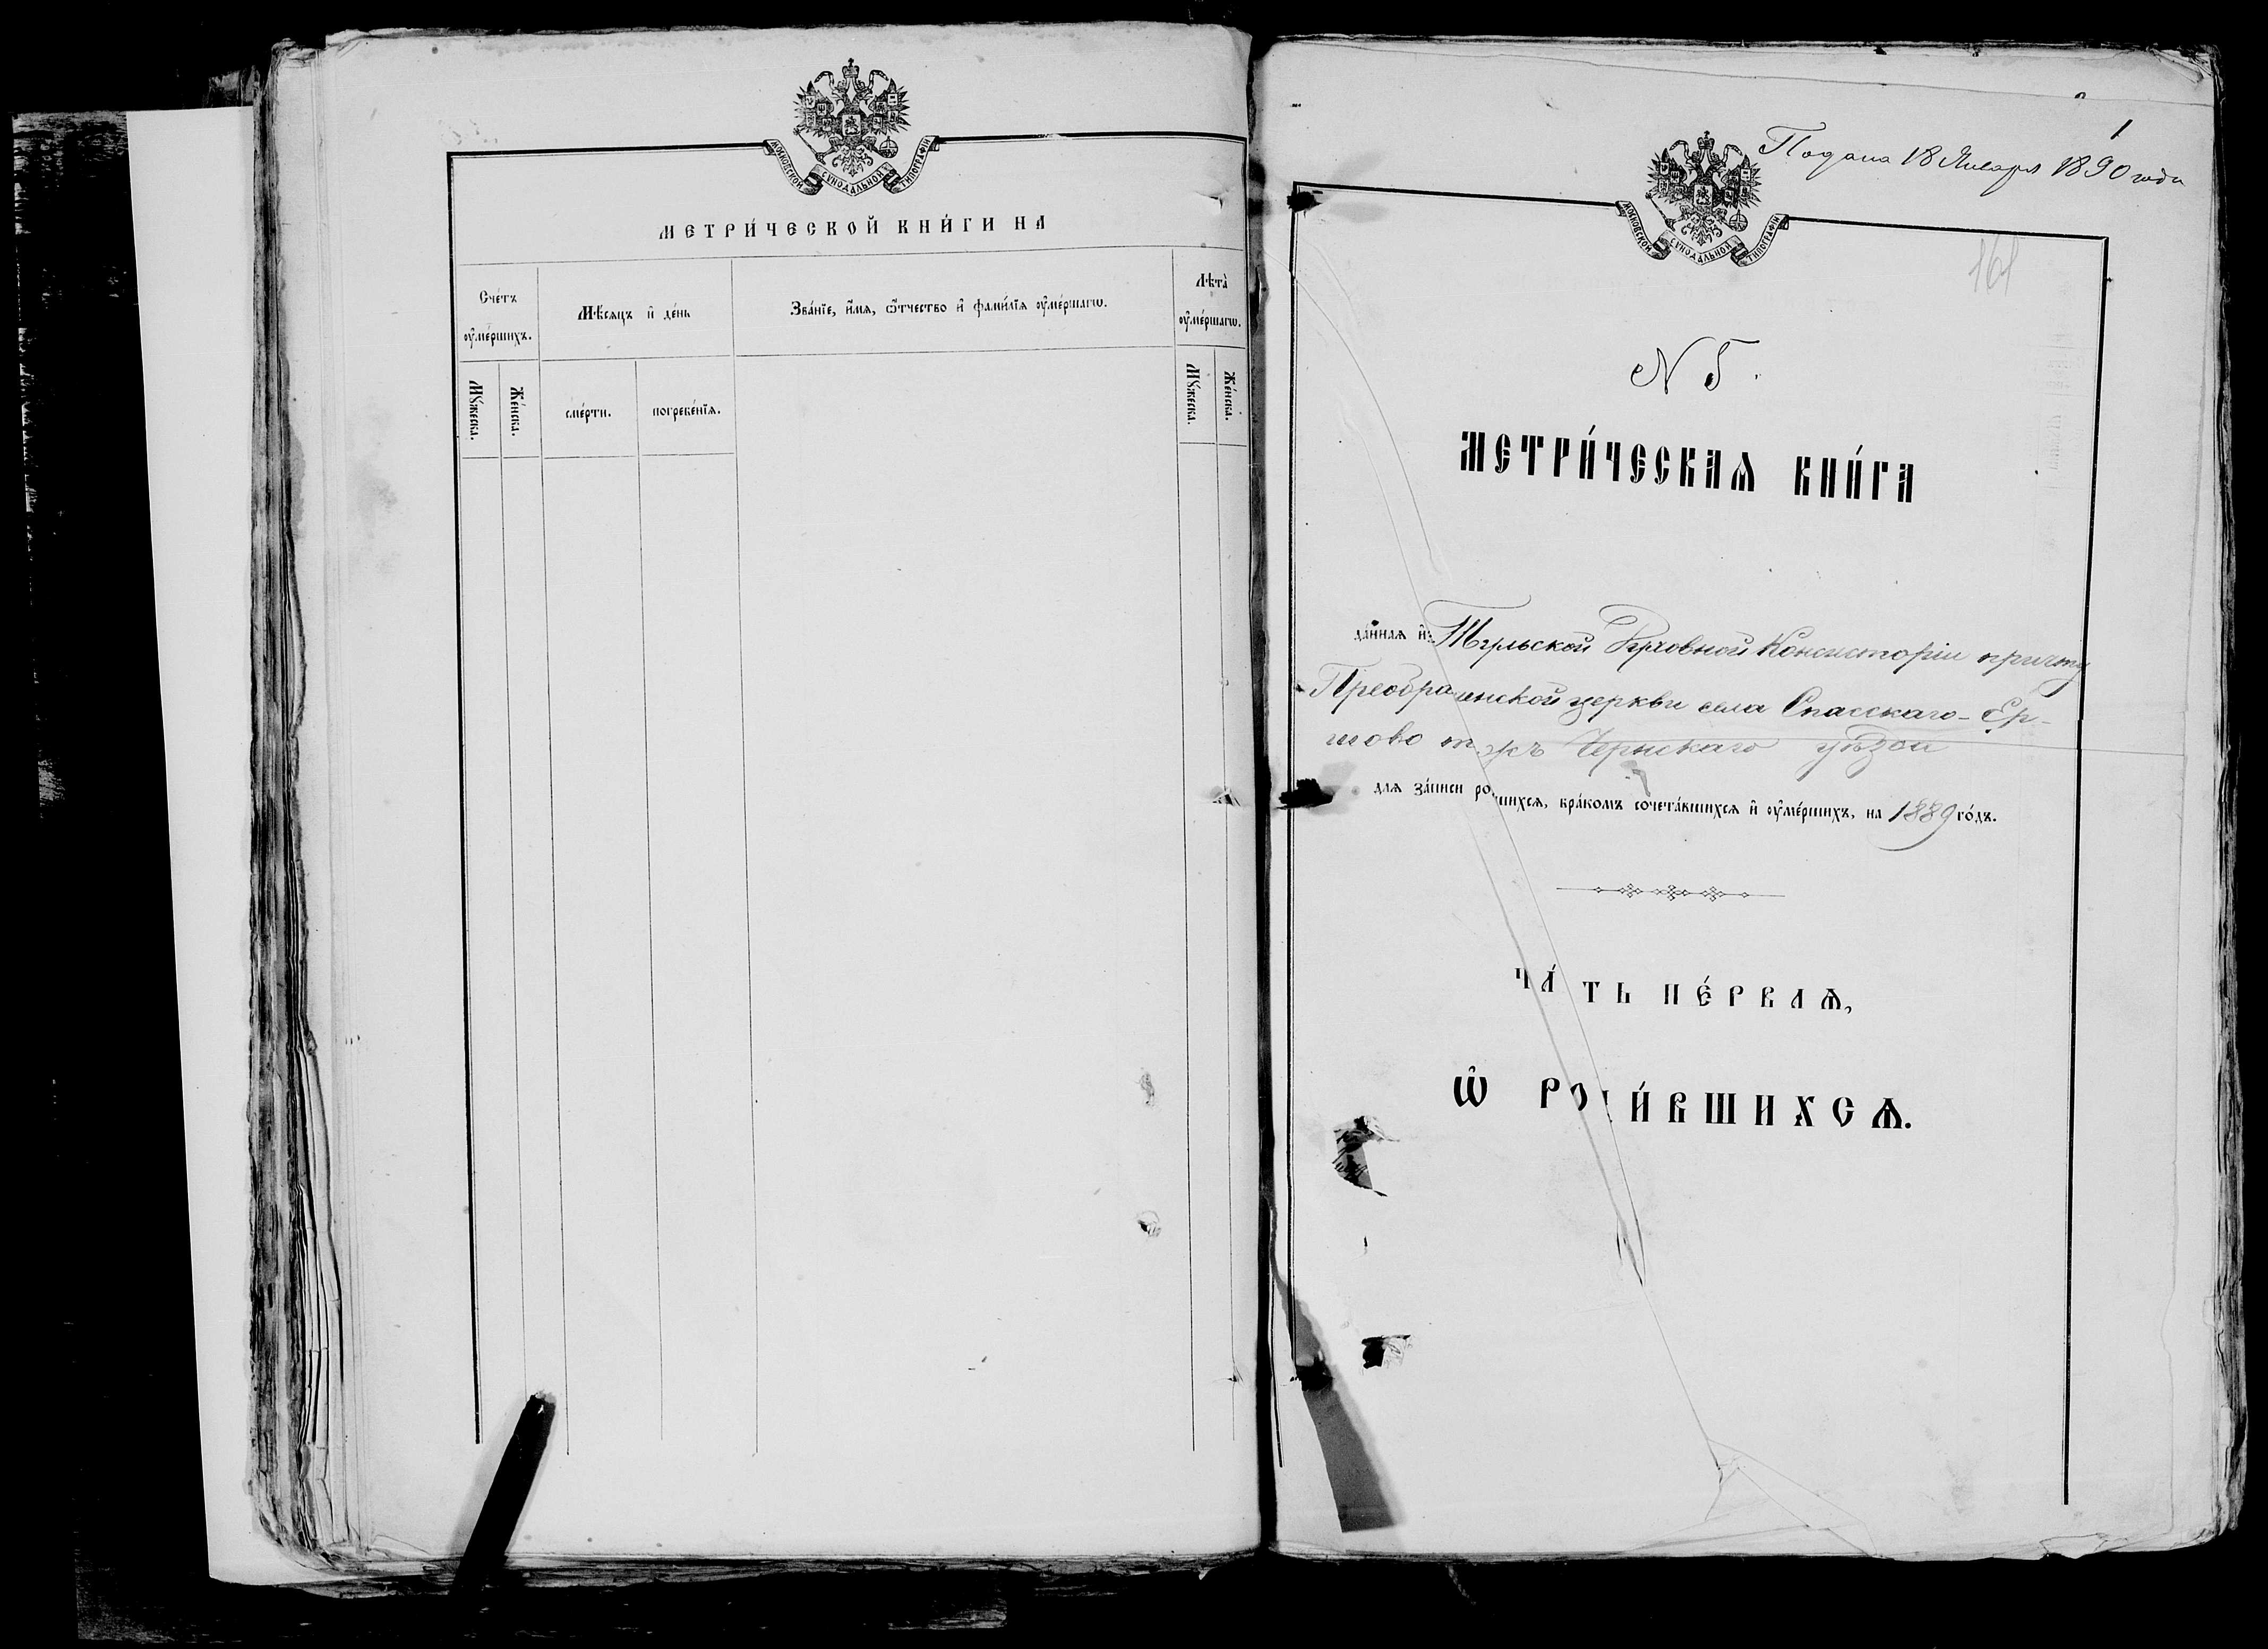 МОСКОВСКОЙ СѴНОДАЛЬНОЙ ТИПОГРАФІИ
МЕТРИ́ЧЕСКОЙ КНИ́ГИ НА
Сче́тъ ᲂу҆ме́ршихъ.
Мѣ́сяцъ и҆ де́нь
Зва́нїе, и҆́мѧ, ѻ҆́тчество и҆ фами́лїѧ ᲂу҆ме́ршагѡ.
Лѣ́та̀ ᲂу҆ме́ршагѡ.
Мꙋ́жеска.
Же́нска.
сме́рти.
погребе́нїѧ.
Мꙋ́жеска.
Же́нска.
Подана 18 Января 1890 года
1
МОСКОВСКОЙ СѴНОДАЛЬНОЙ ТИПОГРАФІИ
161
N 5.
МЕТРИ́ЧЕСКАѦ КНИ́ГА
да́ннаѧ и҆з Тульской Духовной Консисторіи причту
Преображенской церкви села Спасскаго-
Чернскаго уѣзда
для за́писи ро шихсѧ, бра́комъ сочета́вшихсѧ и҆ ᲂу҆ме́ршихъ, на 1889 го́дъ.
ЧА́ ТЬ ПЕ́РВАѦ,
Ѡ҆ РО И́ВШИХСѦ.